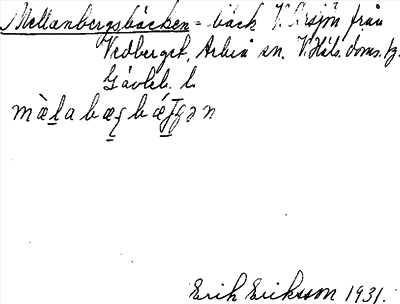 Mellanbergsbäcken = bäck V. Årsjön från
Vedberget, Arbrå sn. V. Häls. doms. fg.
Gävleb. l.
mæ̀la bærbǽkən
Erik Eriksson 1931.